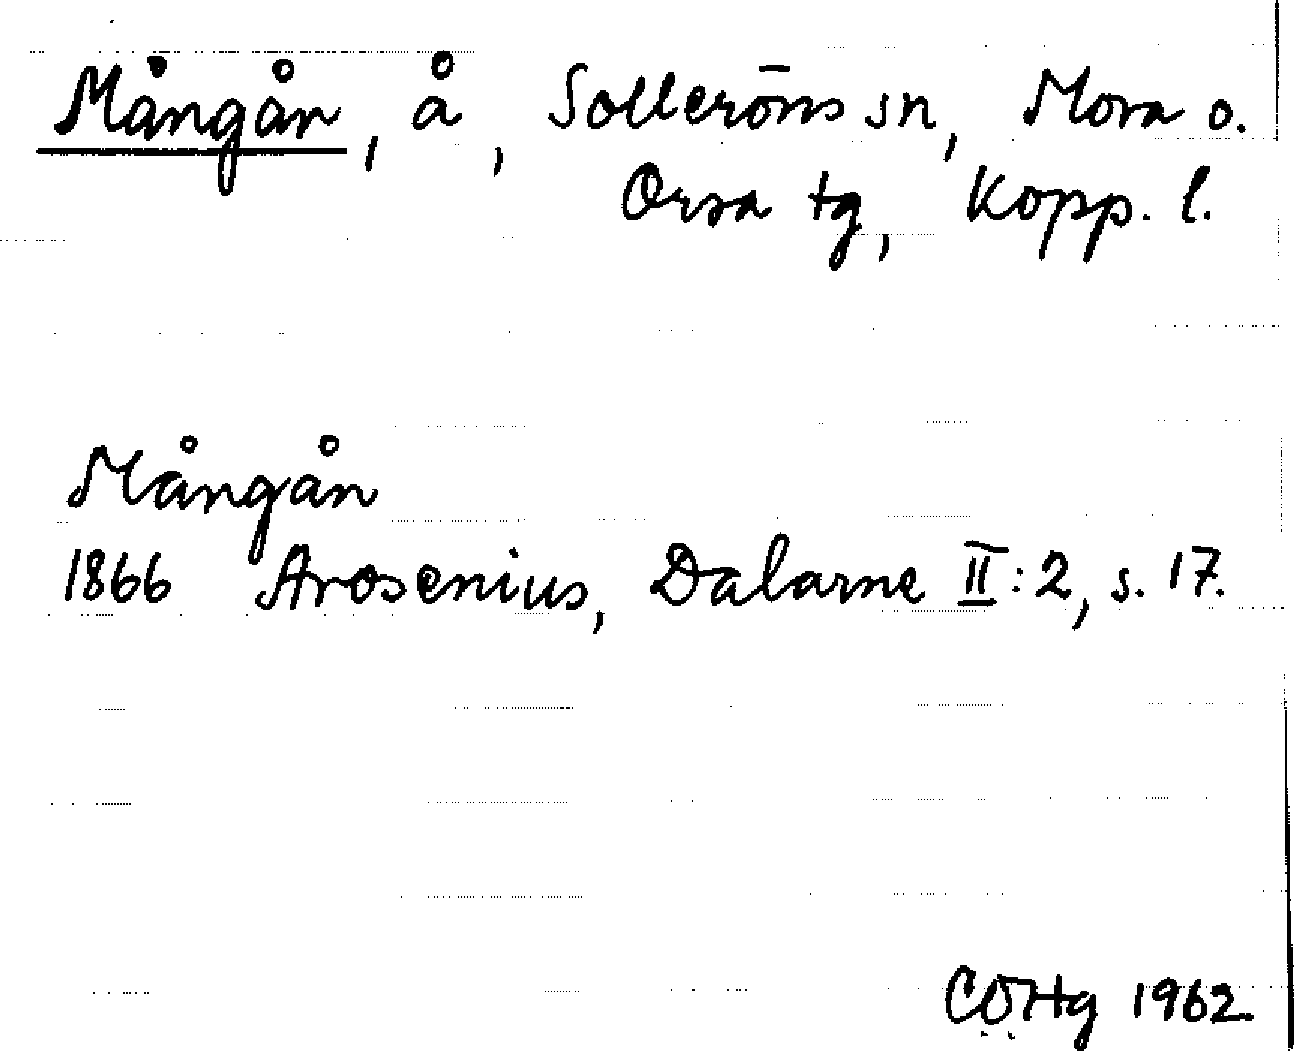 Mångån, å, Solleröns sn, Mora o.
Orsa tg, Kopp. l.
Mångån
1866 Arosenius, Dalarne II:2, s. 17.
CÖHg 1962